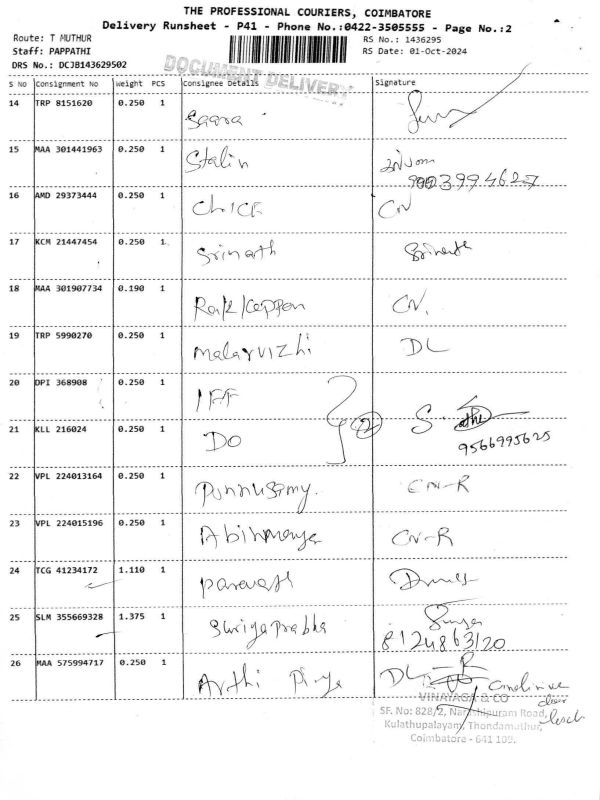 THE PROFESSIONAL COURIERS, COIMBATORE
Delivery Runsheet - P41 - Phone No.:0422-3505555 - Page No.:2
Route: T MUTHUR
RS No.: 1436295
Staff: PAPPATHI
RS Date: 01-Oct-2024
DRS No.: DCJB143629502
DOCUMENT DELIVERY
S No Consignment No Weight PCS Consignee Details Signature
14 TRP 8151620 0.250 1 Saara
15 MAA 301441963 0.250 1 Stalin
9003994627
16 AMD 29373444 0.250 1 CHICK CN
17 KCM 21447454 0.250 1 Srinath Srinath
18 MAA 301907734 0.190 1 CN.
19 TRP 5990270 0.250 1 Malarvizhi DL
20 DPI 368908 0.250 1 IFF
21 KLL 216024 0.250 1 DO 2 S.
9566995625
22 VPL 224013164 0.250 1 Ponnusamy. CN-R
23 VPL 224015196 0.250 1 CN-R
24 TCG 41234172 1.110 1
25 SLM 355669328 1.375 1 Suriyaprabha
8124863120
26 MAA 575994717 0.250 1 Arthi Priya DL-R
door lock
VINAYAGA & CO
SF. No: 828/2, Narashipuram Road,
Kulathupalayam, Thondamuthur,
Coimbatore - 641 109.